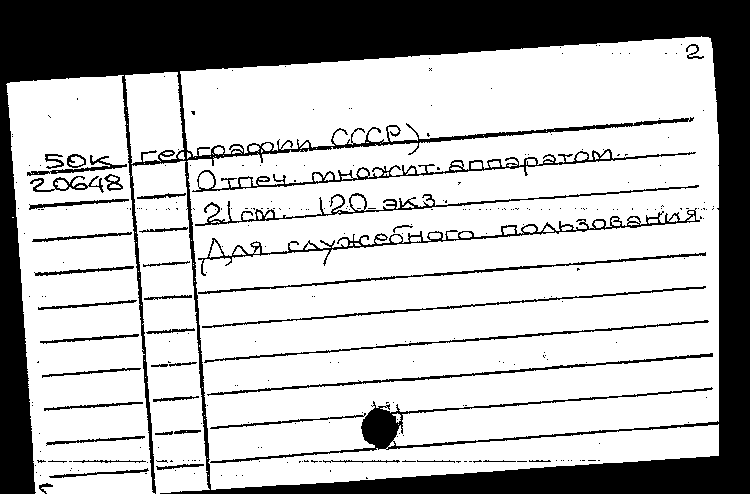 2
50к географии СССР).
20648 Отпеч. множит. аппаратом.
21 см. 120 экз.
Для служебного пользования